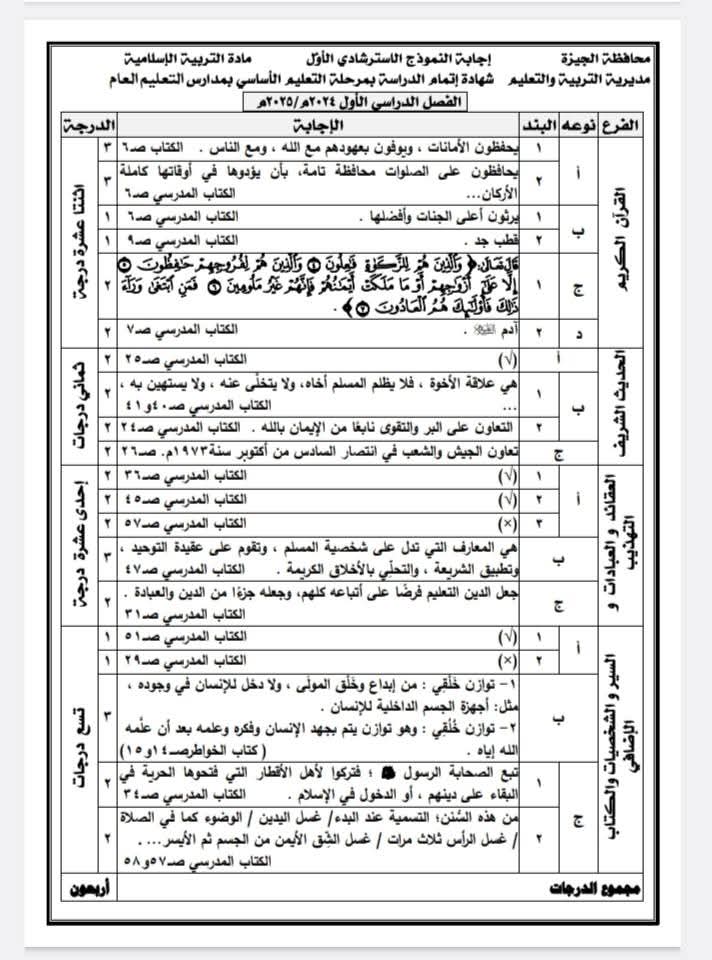 محافظة الجيزة إجابة النموذج الاسترشادي الأول مادة التربية الإسلامية
مديرية التربية والتعليم شهادة إتمام الدراسة بمرحلة التعليم الأساسي بمدارس التعليم العام
الفصل الدراسي الأول ٢٠٢٤م/٢٠٢٥م
الفرع نوعه البند الإجابة الدرجة
القرآن الكريم
اثنتا عشرة درجة
أ ١ يحفظون الأمانات ، ويوفون بعهودهم مع الله ، ومع الناس . الكتاب صـ٦ ٣
٢ يحافظون على الصلوات محافظة تامة، بأن يؤدوها في أوقاتها كاملة ٣
الأركان... الكتاب المدرسي صـ٦
ب ١ يرثون أعلى الجنات وأفضلها . الكتاب المدرسي صـ٦ ١
٢ قطب جد . الكتاب المدرسي صـ٩ ١
ج ١ قال تعالى: ﴿ وَالَّذِينَ هُمْ لِلزَّكَاةِ فَاعِلُونَ ٤ وَالَّذِينَ هُمْ لِفُرُوجِهِمْ حَافِظُونَ ٥ ٢
إِلَّا عَلَىٰ أَزْوَاجِهِمْ أَوْ مَا مَلَكَتْ أَيْمَانُهُمْ فَإِنَّهُمْ غَيْرُ مَلُومِينَ ٦ فَمَنِ ابْتَغَىٰ وَرَاءَ
ذَٰلِكَ فَأُولَٰئِكَ هُمُ الْعَادُونَ ٧ ﴾ .
د ٢ آدم . الكتاب المدرسي صـ٧ ٢
الحديث الشريف
ثماني درجات
أ (√) الكتاب المدرسي صـ٢٥ ٢
ب ١ هي علاقة الأخوة ، فلا يظلم المسلم أخاه، ولا يتخلَّى عنه ، ولا يستهين به ، ٢
... الكتاب المدرسي صـ٤٠و٤١
٢ التعاون على البر والتقوى نابعًا من الإيمان بالله . الكتاب المدرسي صـ٢٤ ٢
ج تعاون الجيش والشعب في انتصار السادس من أكتوبر سنة١٩٧٣م. صـ٢٦ ٢
العقائد و العبادات و التهذيب
إحدى عشرة درجة
أ ١ (√) الكتاب المدرسي صـ٣٦ ٢
٢ (√) الكتاب المدرسي صـ٤٥ ٢
٣ (×) الكتاب المدرسي صـ٥٧ ٢
ب هي المعارف التي تدل على شخصية المسلم ، وتقوم على عقيدة التوحيد ، ٣
وتطبيق الشريعة ، والتحلِّي بالأخلاق الكريمة . الكتاب المدرسي صـ٤٧
ج جعل الدين التعليم فرضًا على أتباعه كلهم، وجعله جزءًا من الدين والعبادة . ٢
الكتاب المدرسي صـ٣١
السير و الشخصيات والكتاب الإضافي
تسع درجات
أ ١ (√) الكتاب المدرسي صـ٥١ ١
٢ (×) الكتاب المدرسي صـ٢٩ ١
ب ١– توازن خَلْقِي : من إبداع وخَلْق المولَى ، ولا دخل للإنسان في وجوده ، ٣
مثل: أجهزة الجسم الداخلية للإنسان .
٢– توازن خُلُقِي : وهو توازن يتم بجهد الإنسان وفكره وعلمه بعد أن علَّمه
الله إياه . (كتاب الخواطرصـ١٤و١٥)
ج ١ تبع الصحابة الرسول ؛ فتركوا لأهل الأقطار التي فتحوها الحرية في ٢
البقاء على دينهم ، أو الدخول في الإسلام . الكتاب المدرسي صـ٣٤
٢ من هذه السُّنن؛ التسمية عند البدء/ غسل اليدين / الوضوء كما في الصلاة ٢
/ غسل الرأس ثلاث مرات / غسل الشِّق الأيمن من الجسم ثم الأيسر... .
الكتاب المدرسي صـ٥٧و٥٨
مجموع الدرجات أربعون